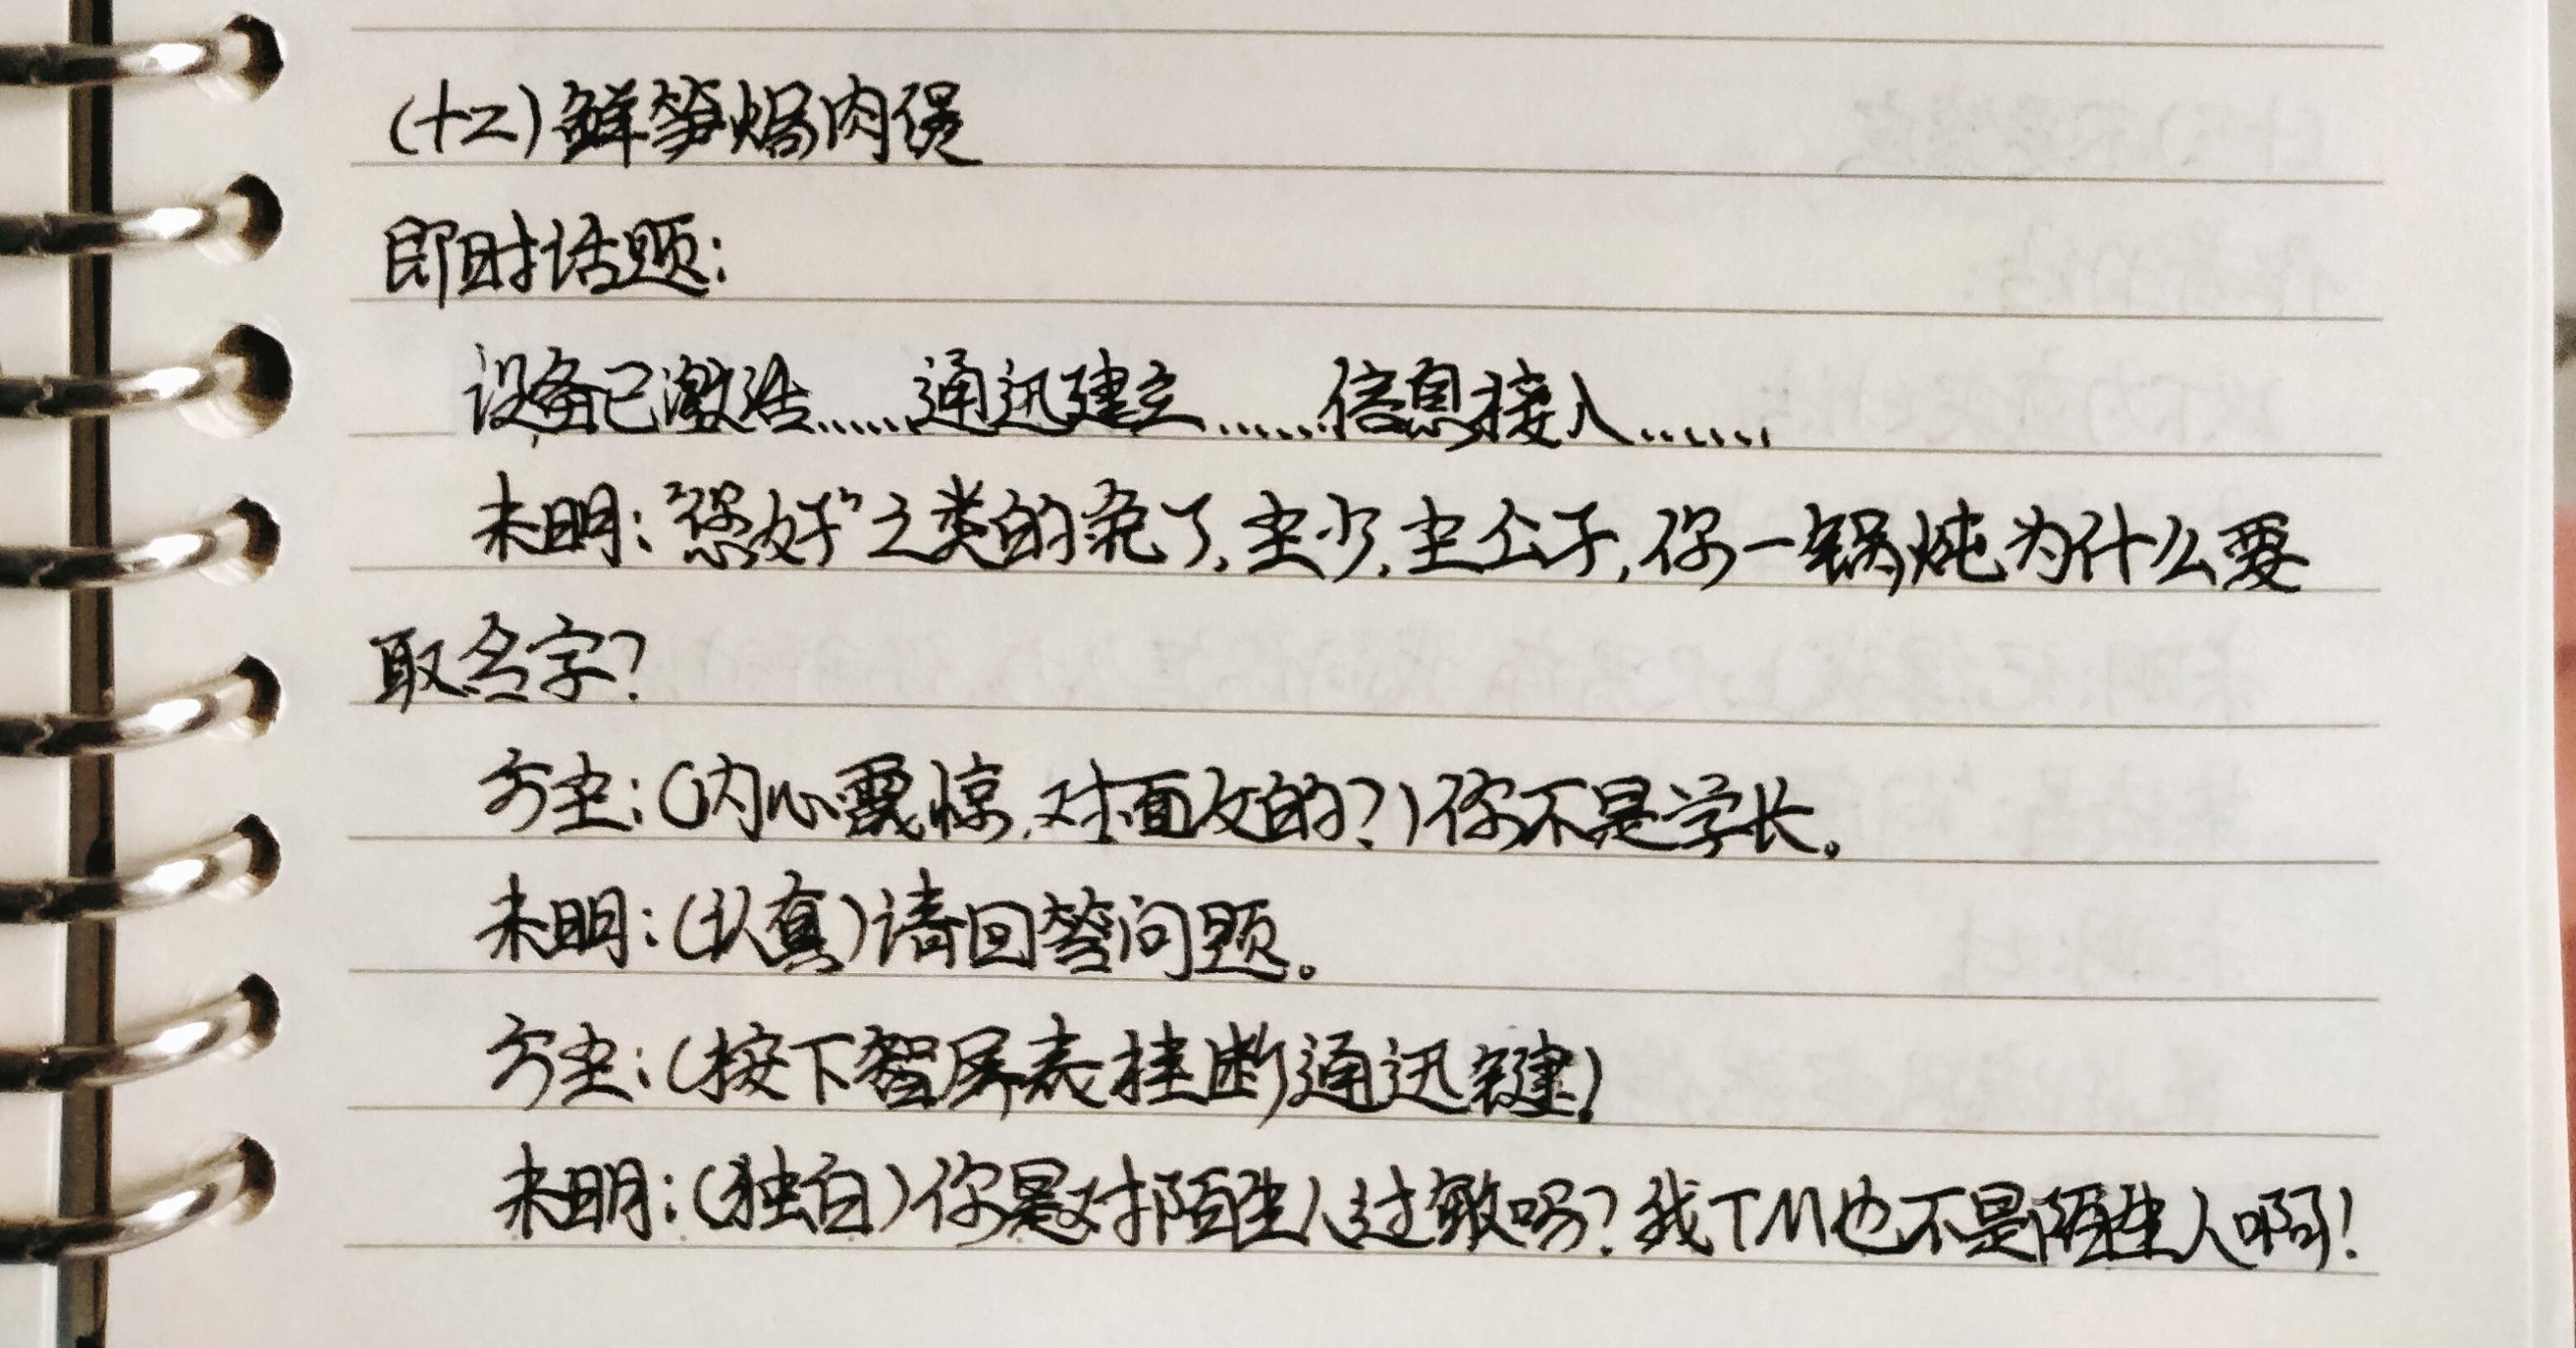 (十二)鲜笋焗肉煲
即时话题:
设备已激活……通迅建立……信息接入……
未明:“您好”之类的免了,尘少,尘公子,你一锅炖为什么要
取名字?
方尘:(内心震惊,对面女的?)你不是学长。
未明:(认真)请回答问题。
方尘:(按下智屏表挂断通迅键)
未明:(独白)你是对陌生人过敏吗?我TM也不是陌生人啊!